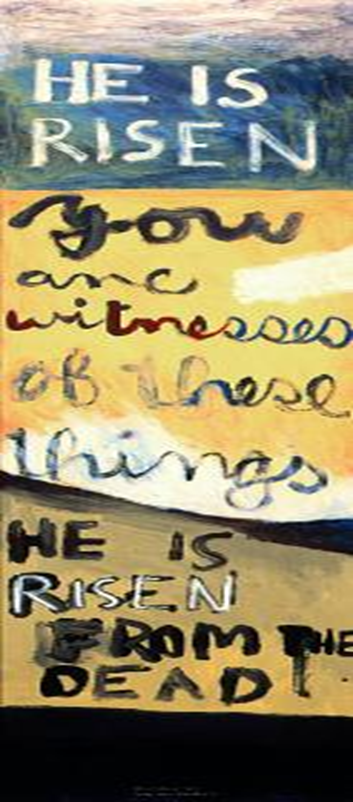 HE IS
RISEN
you
are
witnesses
of these
things
HE IS
RISEN
FROM THE
DEAD!